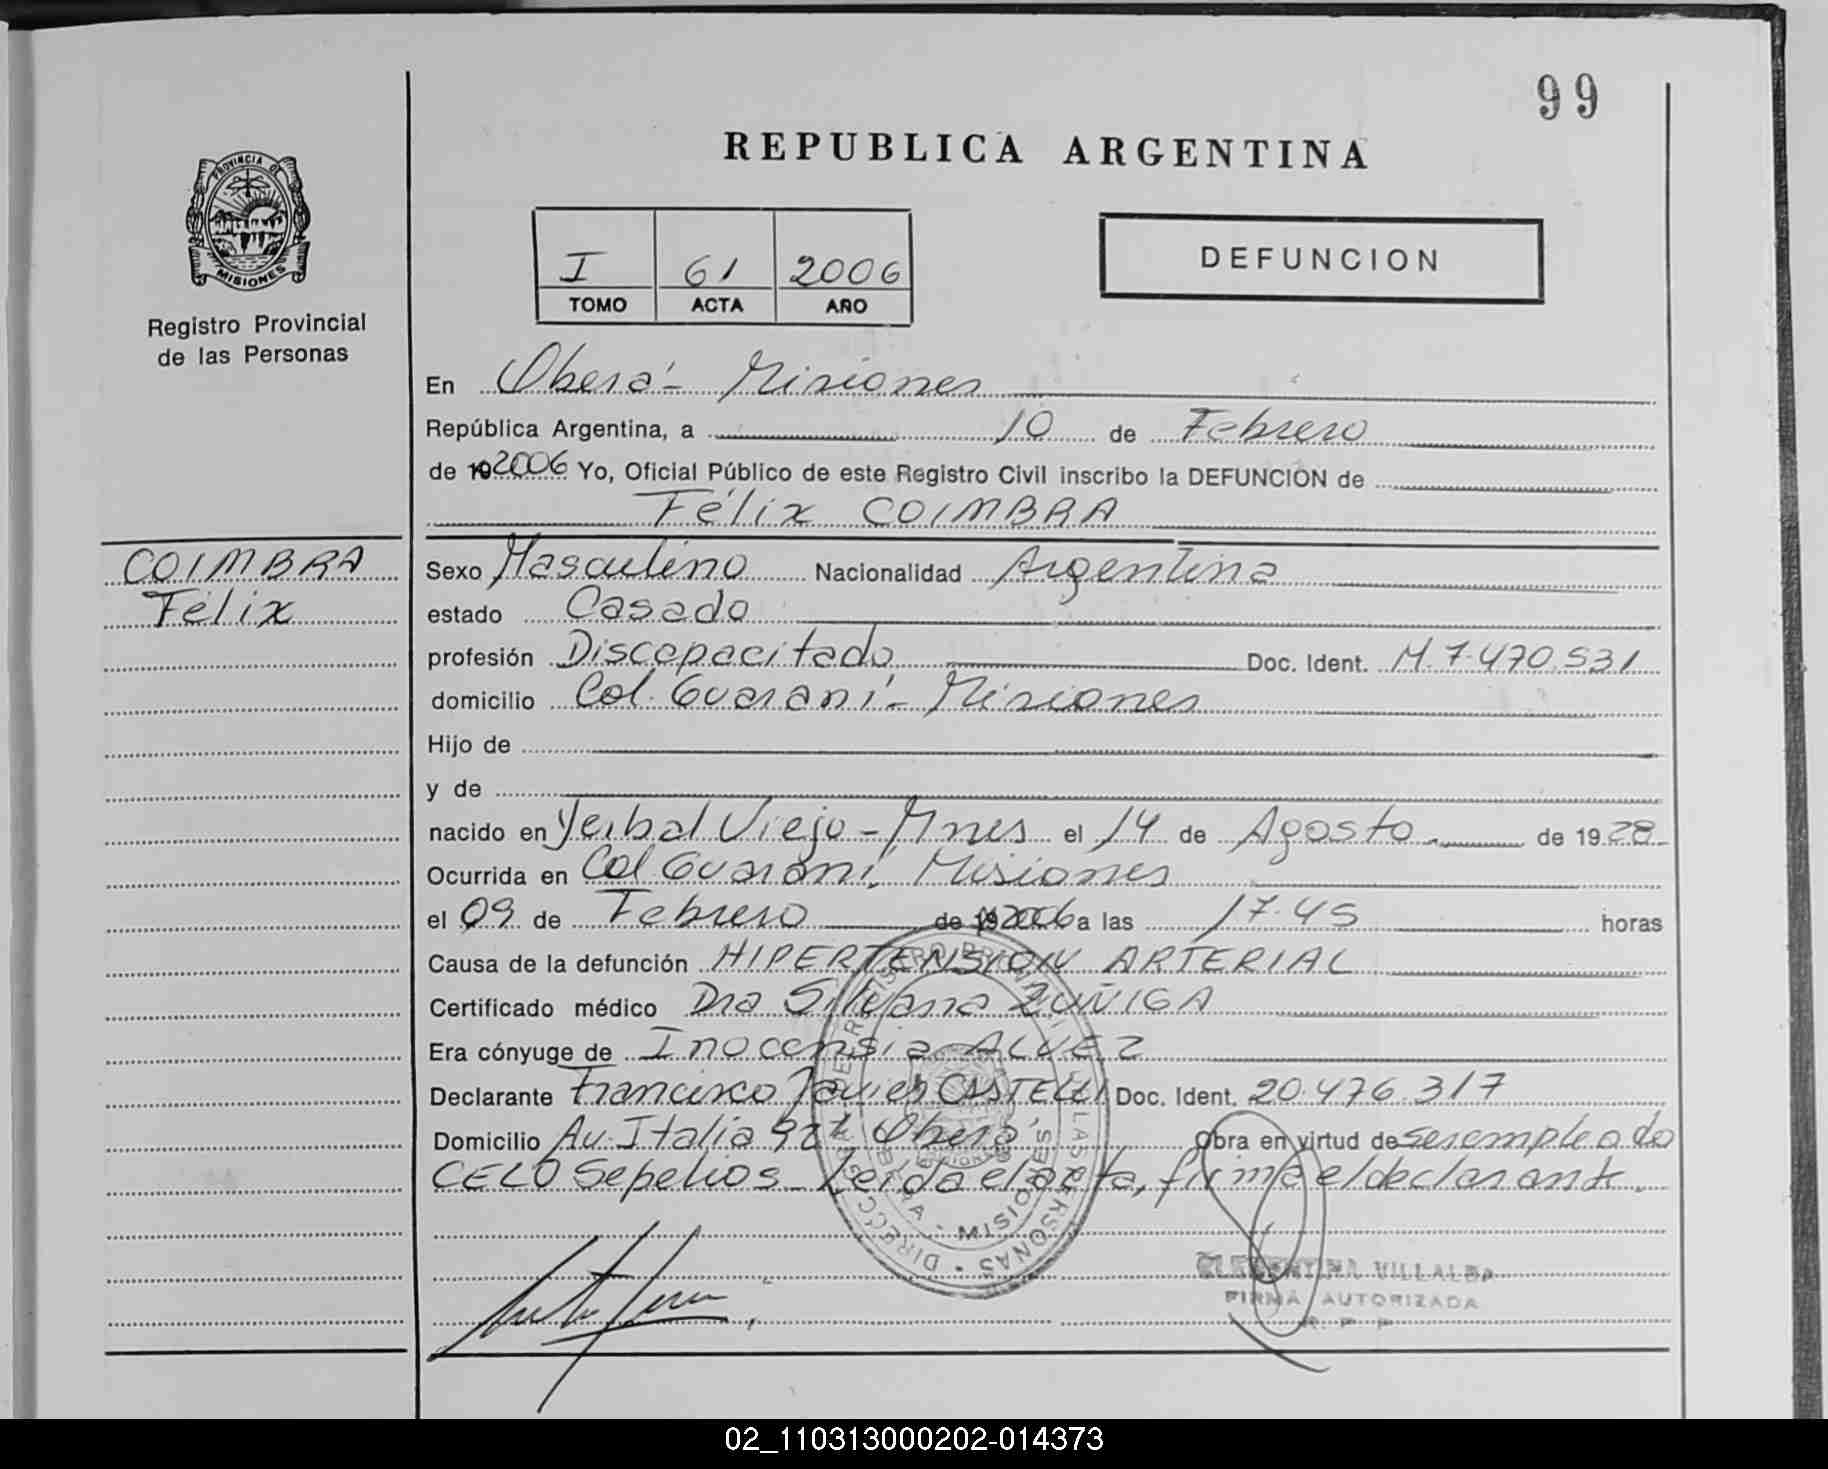 99
REPUBLICA ARGENTINA
PROVINCIA DE
MISIONES
Registro Provincial
de las Personas
I 61 2006
TOMO ACTA AÑO
DEFUNCION
En Oberá - Misiones
República Argentina, a 10 de Febrero
de 19 2006 Yo, Oficial Público de este Registro Civil inscribo la DEFUNCION de
Félix COIMBRA
COIMBRA
Félix
Sexo Masculino Nacionalidad Argentina
estado Casado
profesión Discapacitado Doc. Ident. M. 7.470.531
domicilio Col. Guaraní - Misiones
Hijo de
y de
nacido en Yerbal Viejo - Mnes el 14 de Agosto de 1928
Ocurrida en Col Guaraní, Misiones
el 09 de Febrero de 19 2006 a las 17.45 horas
Causa de la defunción HIPERTENSION ARTERIAL
Certificado médico Dra Silvana ZUÑIGA
Era cónyuge de Inocensia ALVEZ
Declarante Francisco Javier CASTELLI Doc. Ident. 20.476.317
Domicilio Av. Italia Oberá Obra en virtud de ser empleado
CELO Sepelios - Leida el acta, firma el declarante.
VILLALBA
FIRMA AUTORIZADA
R. P. P.
02_110313000202-014373